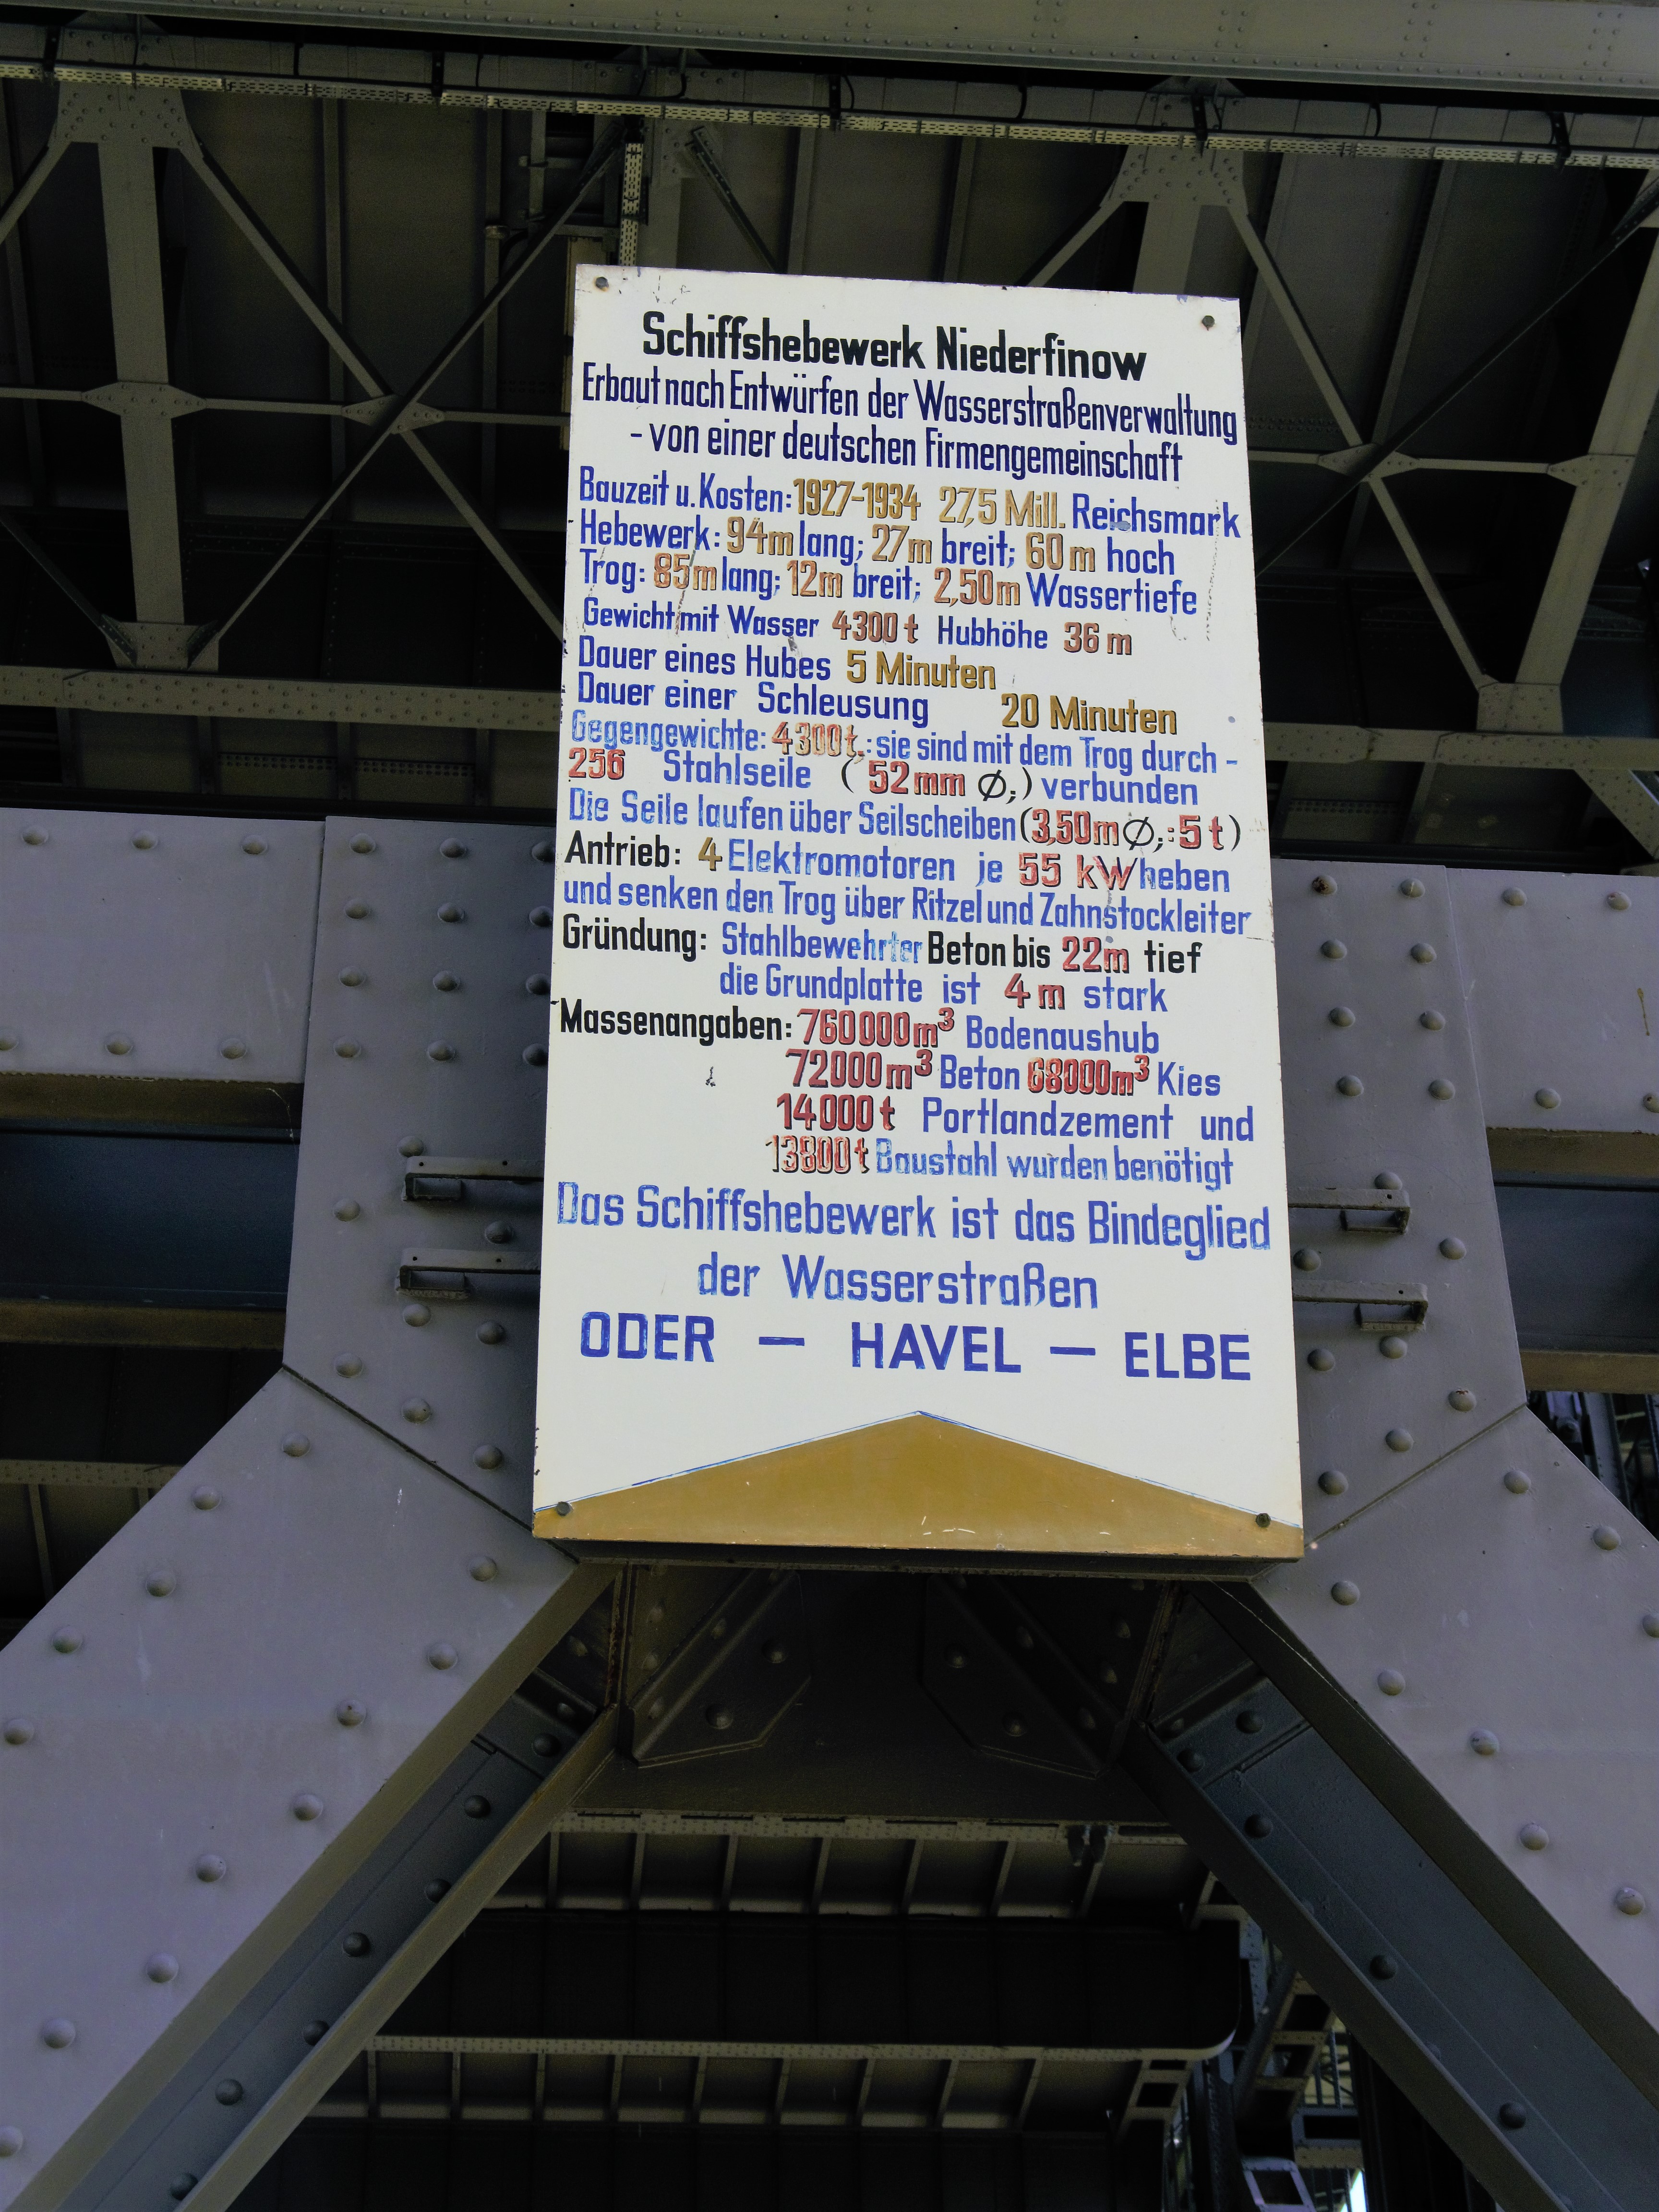 Schiffshebewerk Niederfinow
Erbaut nach Entwürfen der Wasserstraßenverwaltung
- von einer deutschen Firmengemeinschaft
Bauzeit u. Kosten: 1927-1934 27,5 Mill. Reichsmark
Hebewerk: 94m lang; 27m breit; 60m hoch
Trog: 85m lang; 12m breit; 2,50m Wassertiefe
Gewicht mit Wasser 4300t Hubhöhe 36m
Dauer eines Hubes 5 Minuten
Dauer einer Schleusung 20 Minuten
Gegengewichte: 4300t.: sie sind mit dem Trog durch -
256 Stahlseile (52mm Ø;) verbunden
Die Seile laufen über Seilscheiben (3,50m Ø;: 5t)
Antrieb: 4 Elektromotoren je 55 kW heben
und senken den Trog über Ritzel und Zahnstockleiter
Gründung: Stahlbewehrter Beton bis 22m tief
die Grundplatte ist 4m stark
Massenangaben: 760000m³ Bodenaushub
72000m³ Beton 68000m³ Kies
14000t Portlandzement und
13800t Baustahl wurden benötigt
Das Schiffshebewerk ist das Bindeglied
der Wasserstraßen
ODER – HAVEL – ELBE